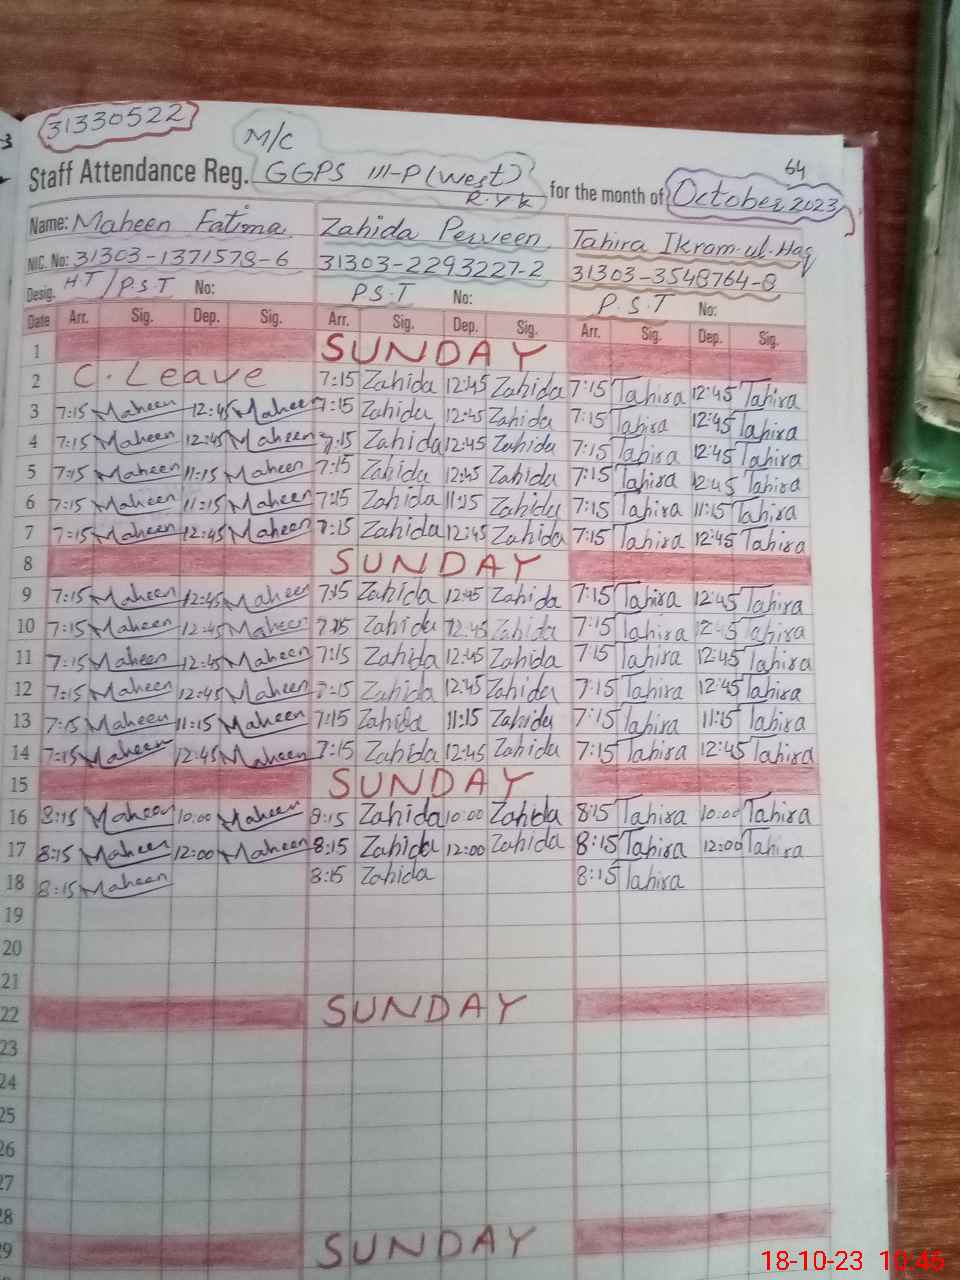 31330522
M/C
64
Staff Attendance Reg. GGPS III-P (West) for the month of October 2023
R.Y.K
Name: Maheen Fatima Zahida Perveen Tahira Ikram-ul-Haq
NIC. No: 31303-1371578-6 31303-2293227-2 31303-3548764-8
Desig. HT/P.S.T No: P.S.T No: P.S.T No:
Date Arr. Sig. Dep. Sig. Arr. Sig. Dep. Sig. Arr. Sig. Dep. Sig.
1 SUNDAY
2 C. Leave 7:15 Zahida 12:45 Zahida 7:15 Tahira 12:45 Tahira
3 7:15 Maheen 12:45 Maheen 7:15 Zahida 12:45 Zahida 7:15 Tahira 12:45 Tahira
4 7:15 Maheen 12:45 Maheen 7:15 Zahida 12:45 Zahida 7:15 Tahira 12:45 Tahira
5 7:15 Maheen 11:15 Maheen 7:15 Zahida 12:45 Zahida 7:15 Tahira 12:45 Tahira
6 7:15 Maheen 11:15 Maheen 7:15 Zahida 11:15 Zahida 7:15 Tahira 11:15 Tahira
7 7:15 Maheen 12:45 Maheen 7:15 Zahida 12:45 Zahida 7:15 Tahira 12:45 Tahira
8 SUNDAY
9 7:15 Maheen 12:45 Maheen 7:15 Zahida 12:45 Zahida 7:15 Tahira 12:45 Tahira
10 7:15 Maheen 12:45 Maheen 7:15 Zahida 12:45 Zahida 7:15 Tahira 12:45 Tahira
11 7:15 Maheen 12:45 Maheen 7:15 Zahida 12:45 Zahida 7:15 Tahira 12:45 Tahira
12 7:15 Maheen 12:45 Maheen 7:15 Zahida 12:45 Zahida 7:15 Tahira 12:45 Tahira
13 7:15 Maheen 11:15 Maheen 7:15 Zahida 11:15 Zahida 7:15 Tahira 11:15 Tahira
14 7:15 Maheen 12:45 Maheen 7:15 Zahida 12:45 Zahida 7:15 Tahira 12:45 Tahira
15 SUNDAY
16 8:15 Maheen 10:00 Maheen 8:15 Zahida 10:00 Zahida 8:15 Tahira 10:00 Tahira
17 8:15 Maheen 12:00 Maheen 8:15 Zahida 12:00 Zahida 8:15 Tahira 12:00 Tahira
18 8:15 Maheen 8:15 Zahida 8:15 Tahira
19
20
21
22 SUNDAY
23
24
25
26
27
28
29 SUNDAY
18-10-23 10:45